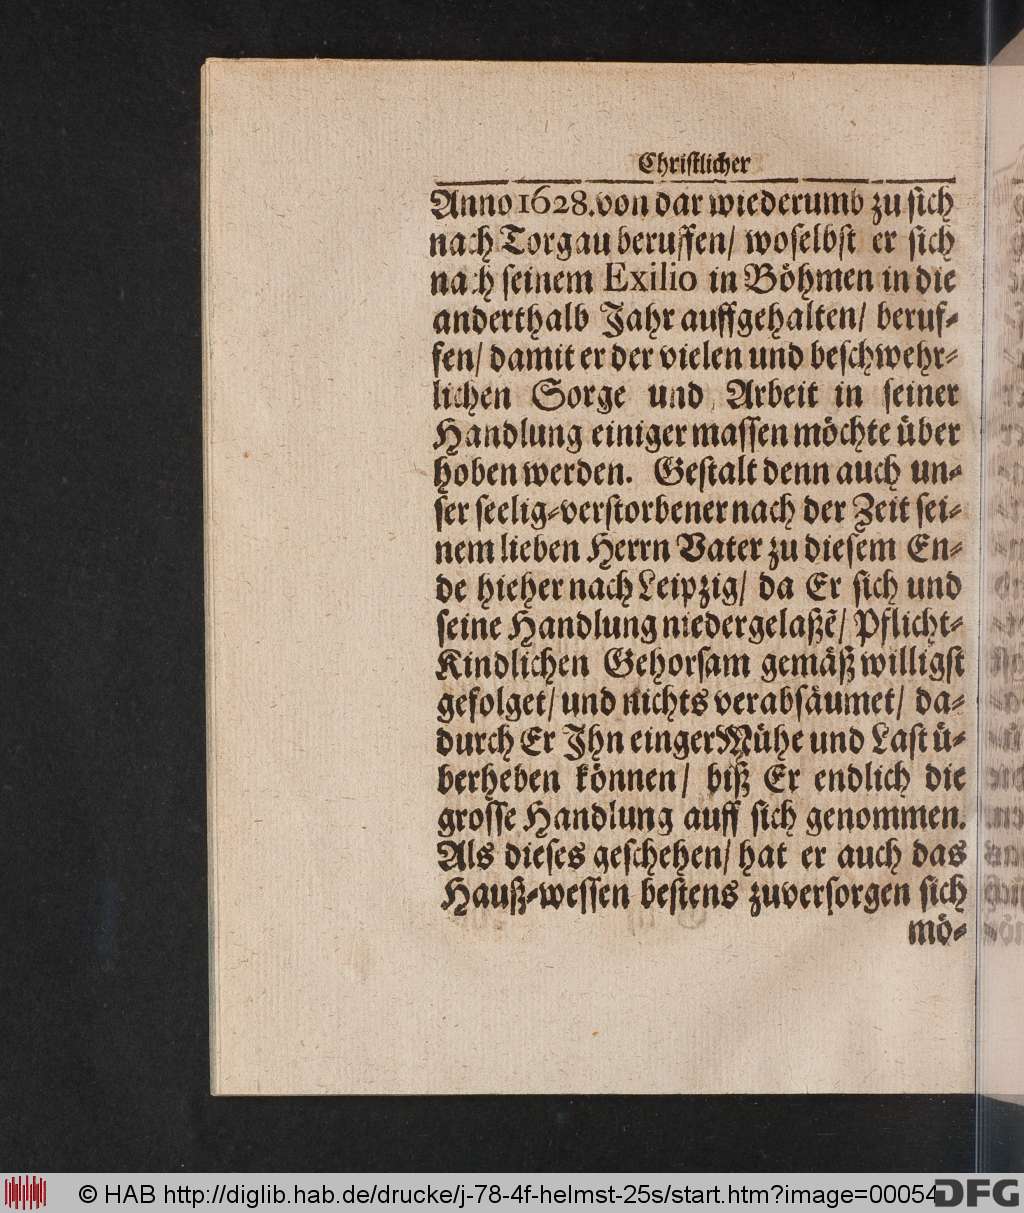 Christlicher
Anno 1628. von dar wiederumb zu sich
nach Torgau beruffen/ woselbst er sich
nach seinem Exilio in Böhmen in die
anderthalb Jahr auffgehalten/ beruf-
fen/ damit er der vielen und beschwehr-
lichen Sorge und Arbeit in seiner
Handlung einiger massen möchte über
hoben werden. Gestalt denn auch un-
ser seelig-verstorbener nach der Zeit sei-
nem lieben Herrn Vater zu diesem En-
de hieher nach Leipzig/ da Er sich und
seine Handlung niedergelaßẽ/ Pflicht-
Kindlichen Gehorsam gemäß willigst
gefolget/ und nichts verabsäumet/ da-
durch Er Ihn einger Mühe und Last ü-
berheben können/ biß Er endlich die
grosse Handlung auff sich genommen.
Als dieses geschehen/ hat er auch das
Hauß-wessen bestens zuversorgen sich
mö-
© HAB http://diglib.hab.de/drucke/j-78-4f-helmst-25s/start.htm?image=00054
DFG